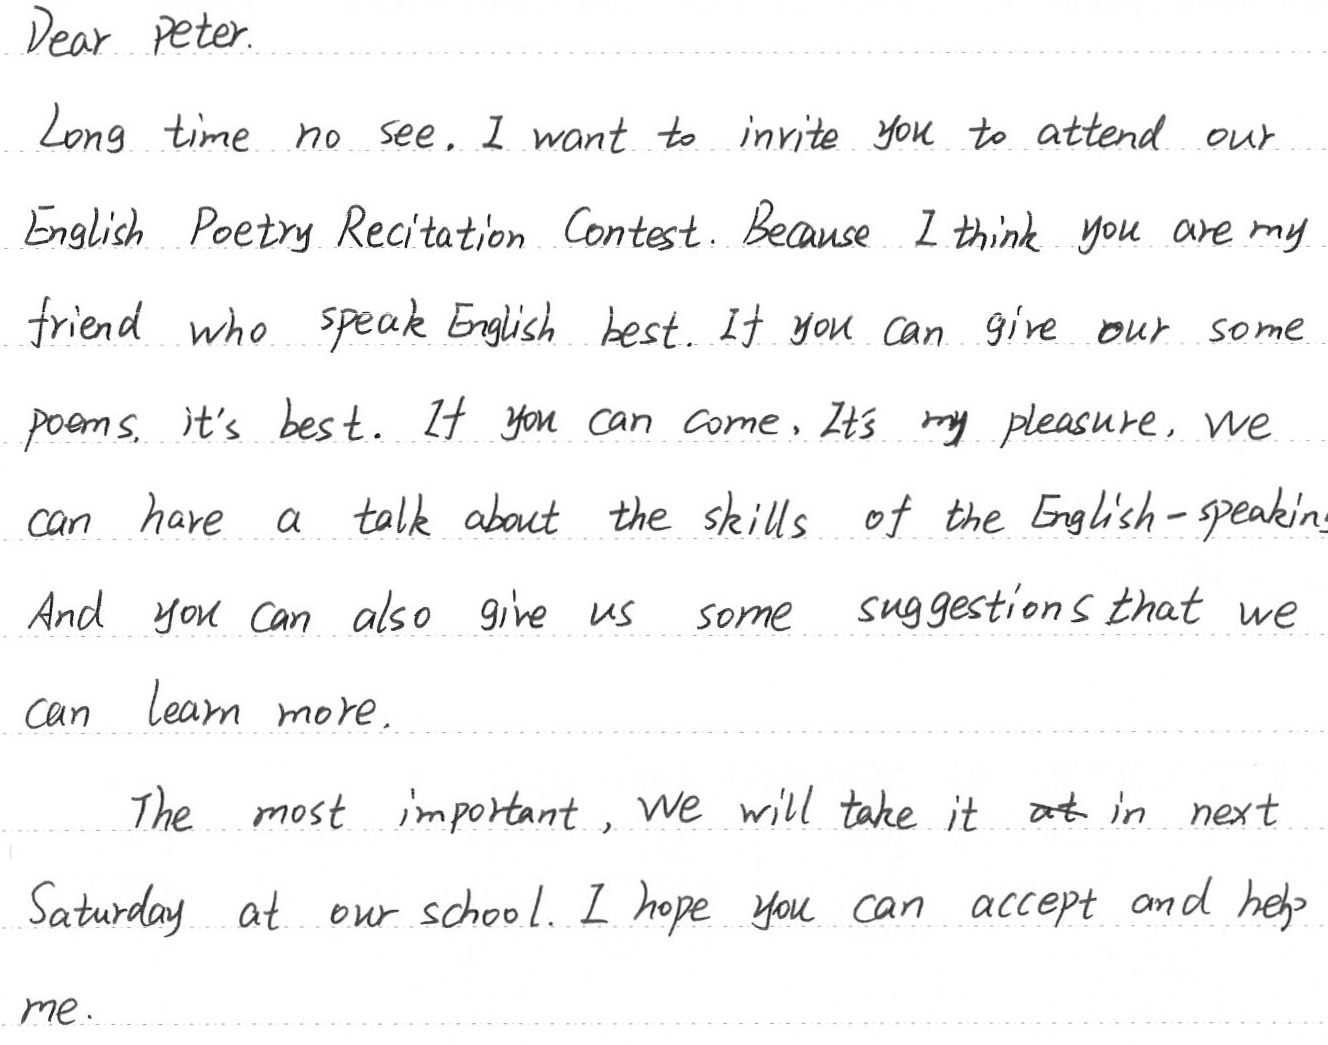 Dear Peter.
Long time no see. I want to invite you to attend our
English Poetry Recitation Contest. Because I think you are my
friend who speak English best. If you can give our some
poems, it's best. If you can come, It's my pleasure, we
can have a talk about the skills of the English-speaking
And you can also give us some suggestions that we
can learn more.
The most important, we will take it at in next
Saturday at our school. I hope you can accept and help
me.